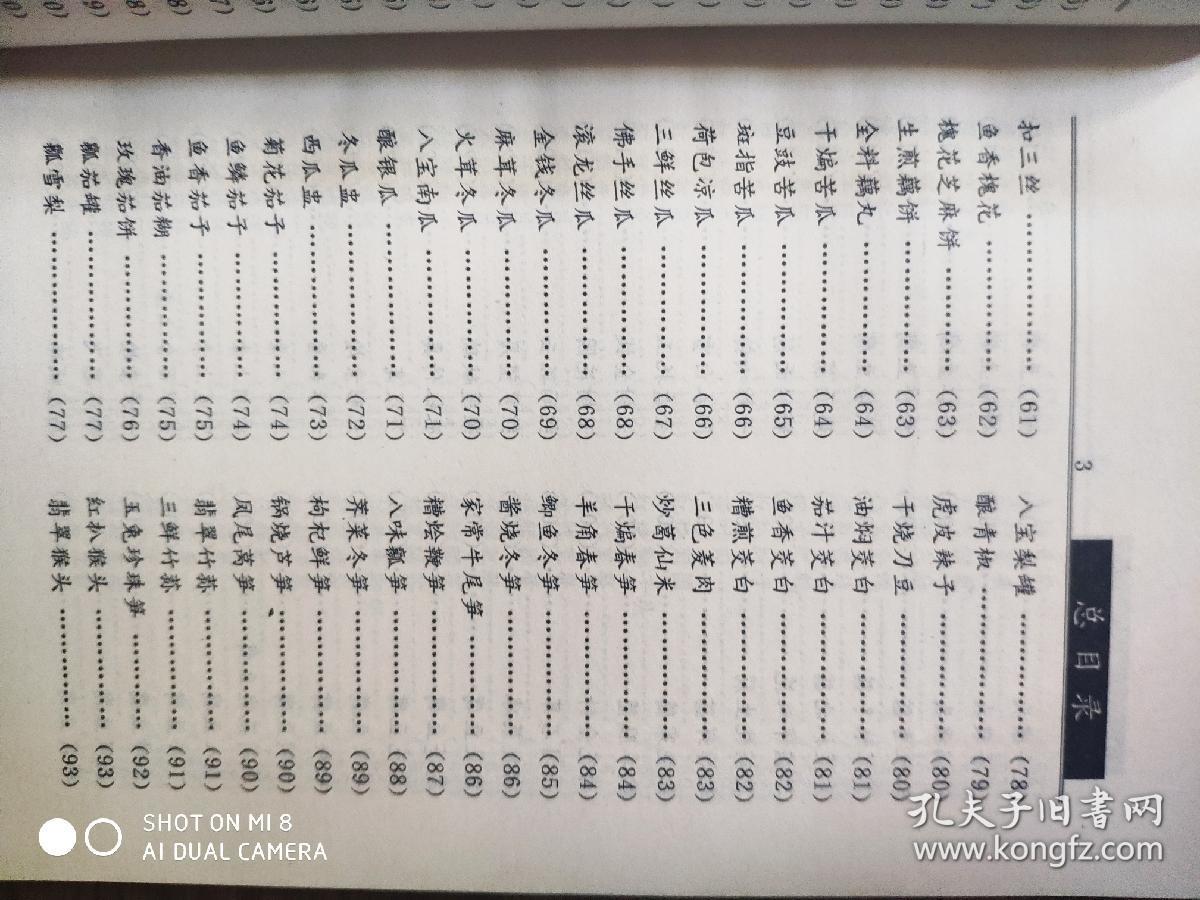 总目录
3
扣三丝 (61)
鱼香槐花 (62)
槐花芝麻饼 (63)
生煎藕饼 (63)
全料藕丸 (64)
干煸苦瓜 (64)
豆豉苦瓜 (65)
斑指苦瓜 (66)
荷包凉瓜 (66)
三鲜丝瓜 (67)
佛手丝瓜 (68)
滚龙丝瓜 (68)
金钱冬瓜 (69)
麻茸冬瓜 (70)
火茸冬瓜 (70)
八宝南瓜 (71)
酿银瓜 (71)
冬瓜盅 (72)
西瓜盅 (73)
菊花茄子 (74)
鱼鳞茄子 (74)
鱼香茄子 (75)
香油茄糊 (75)
玫瑰茄饼 (76)
瓤茄罐 (77)
瓤雪梨 (77)
八宝梨罐 (78)
酿青椒 (79)
虎皮辣子 (80)
干烧刀豆 (80)
油焖茭白 (81)
茄汁茭白 (81)
鱼香茭白 (82)
糟煎茭白 (82)
三色羑肉 (83)
炒葛仙米 (83)
干煸春笋 (84)
羊角春笋 (84)
鲫鱼冬笋 (85)
酱烧冬笋 (86)
家常牛尾笋 (86)
糟烩鞭笋 (87)
八味瓤笋 (88)
荠菜冬笋 (89)
枸杞鲜笋 (89)
锅烧芦笋 (90)
凤尾莴笋 (90)
翡翠竹荪 (91)
三鲜竹荪 (91)
玉兔珍珠笋 (92)
红扒猴头 (93)
翡翠猴头 (93)
SHOT ON MI 8
AI DUAL CAMERA
孔夫子旧书网
www.kongfz.com